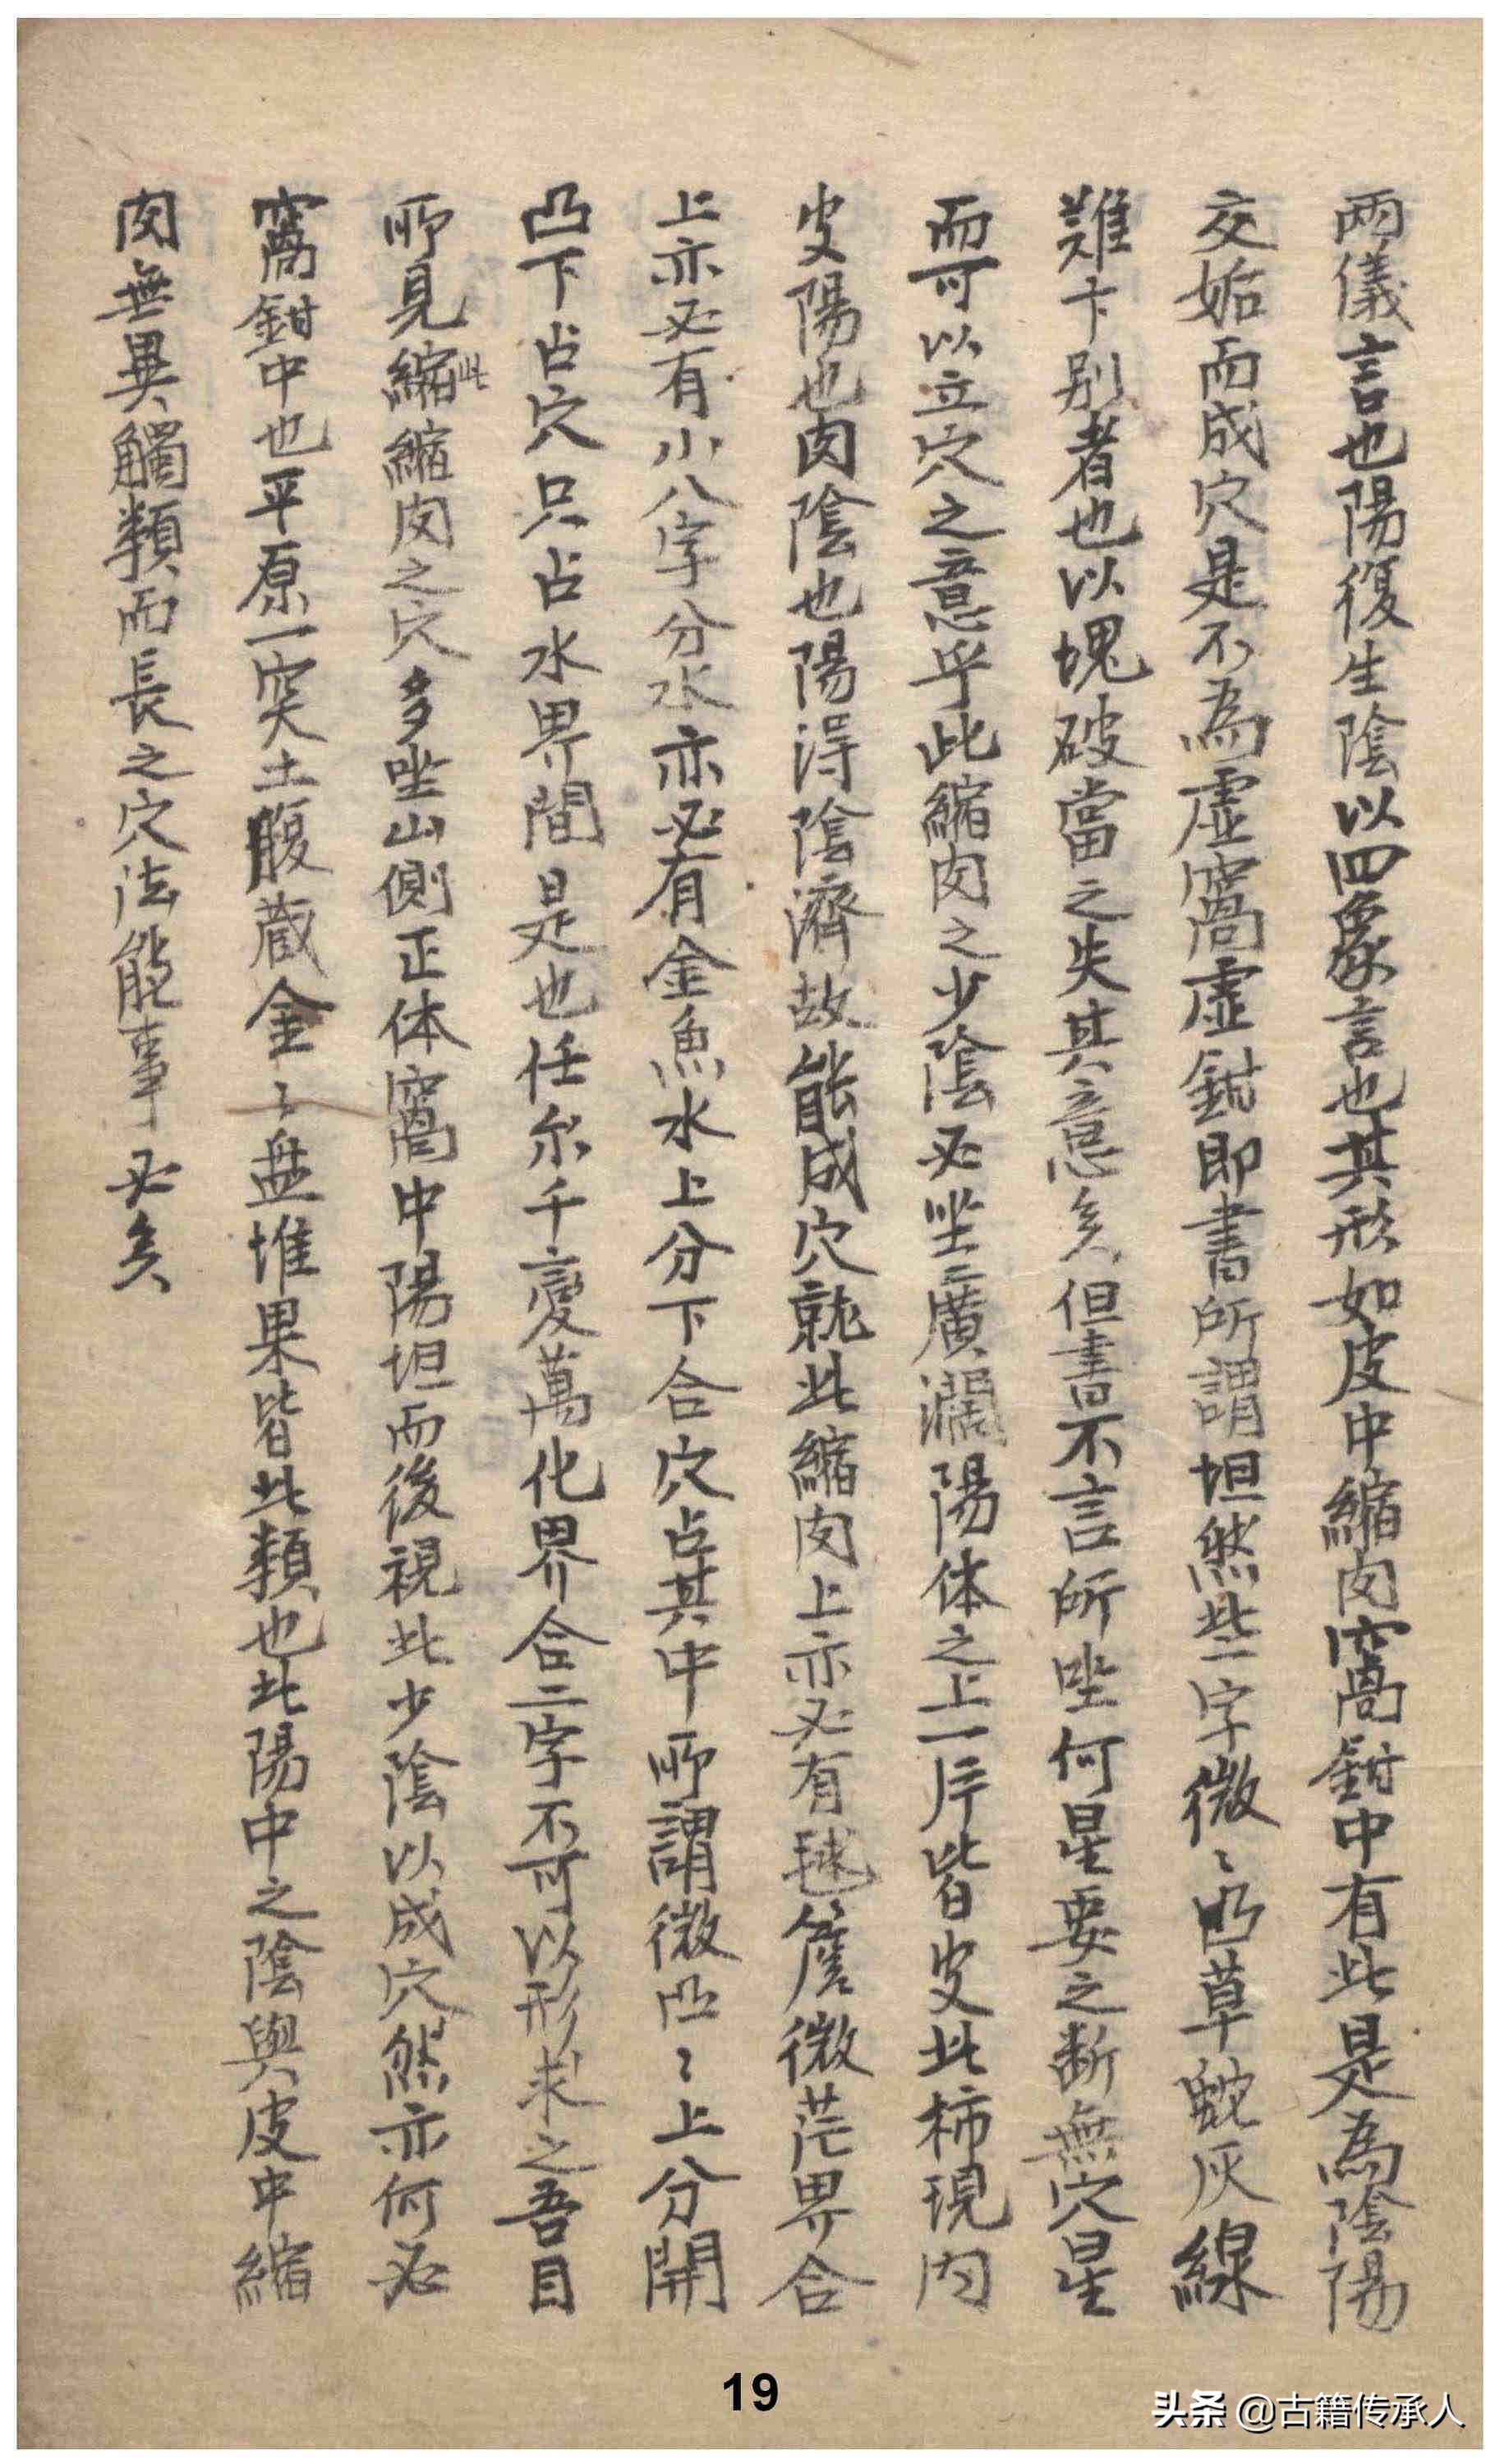 兩儀言也陽復生陰以四象言也其形如皮中縮肉窩鉗中有此是為陰陽
交姤而成穴是不為虛窩虛鉗即書所謂坦然些字微〻凸草蛇灰線
難卞別者也以塊破當之失其意矣但書不言所坐何星要之断無穴星
而可以立穴之意乎此縮肉之少陰必坐二廣濶陽体之上一片皆皮此柿現肉
皮陽也肉陰也陽得陰濟故能成穴就此縮肉上亦必有毬簷微茫界合
上亦必有小八字分水亦必有金魚水上分下合穴占其中所謂微凸〻上分開
凸下占穴只占水界間是也任尔千变萬化界合二字不可以形求之吾目
所見縮此縮肉之穴多坐山側正体窩中陽坦而後視此少陰以成穴然亦何必
窩鉗中也平原一突土腹蔵金〻盘堆果皆此類也此陽中之陰與皮中縮
肉無異觸類而長之穴法能事必矣
19
头条 @古籍传承人